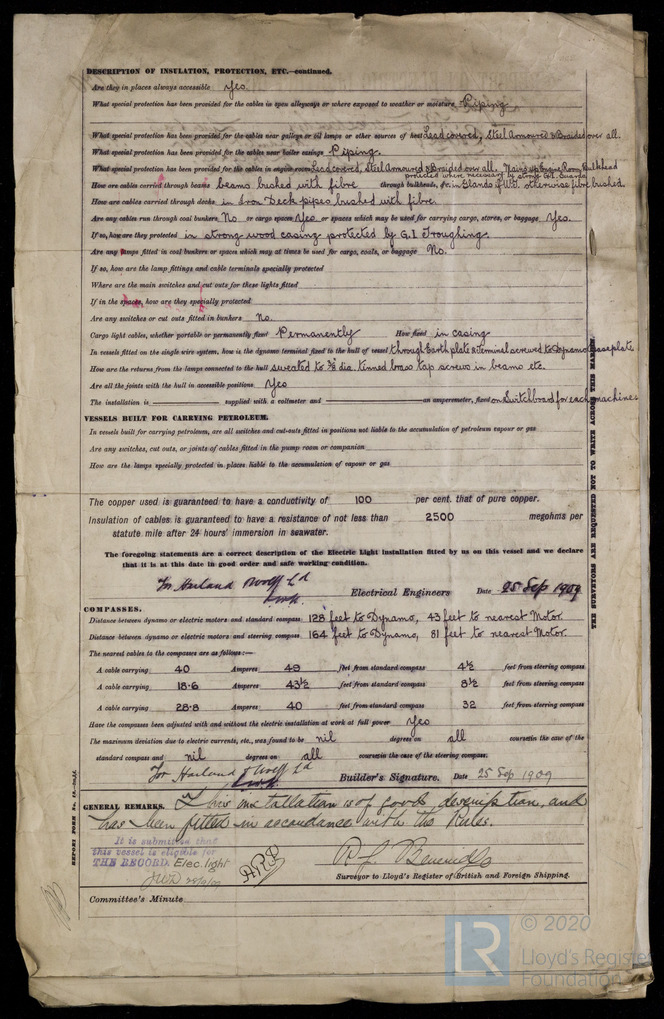 DESCRIPTION OF INSULATION, PROTECTION, ETC.—continued.
Are they in places always accessible Yes
What special protection has been provided for the cables in open alleyways or where exposed to weather or moisture Piping
What special protection has been provided for the cables near galleys or oil lamps or other sources of heat Lead covered, Steel Armoured & Braided over all.
What special protection has been provided for the cables near boiler casings Piping.
What special protection has been provided for the cables in engine room Lead covered, Steel Armoured & Braided over all. Engine Room Bulkhead
protected where necessary by strong G.I. Guards
How are cables carried through beams beams bushed with fibre through bulkheads, &c. in Glands if W.T. otherwise fibre bushed.
How are cables carried through decks in Iron Deck pipes bushed with fibre.
Are any cables run through coal bunkers No or cargo spaces Yes or spaces which may be used for carrying cargo, stores, or baggage Yes.
If so, how are they protected in strong wood casing protected by G.I. Troughing.
Are any lamps fitted in coal bunkers or spaces which may at times be used for cargo, coals, or baggage No.
If so, how are the lamp fittings and cable terminals specially protected
Where are the main switches and cut outs for these lights fitted
If in the spaces, how are they specially protected
Are any switches or cut outs fitted in bunkers No.
Cargo light cables, whether portable or permanently fixed Permanently How fixed in casing
In vessels fitted on the single wire system, how is the dynamo terminal fixed to the hull of vessel through Earth plate & Terminal screwed to Dynamo Baseplate
How are the returns from the lamps connected to the hull sweated to 3/8 dia. tinned brass tap screws in beams etc.
Are all the joints with the hull in accessible positions Yes
The installation is supplied with a voltmeter and an amperemeter, fixed on Switchboard for each machine
VESSELS BUILT FOR CARRYING PETROLEUM.
In vessels built for carrying petroleum, are all switches and cut-outs fitted in positions not liable to the accumulation of petroleum vapour or gas
Are any switches, cut outs, or joints of cables fitted in the pump room or companion
How are the lamps specially protected in places liable to the accumulation of vapour or gas
The copper used is guaranteed to have a conductivity of 100 per cent. that of pure copper.
Insulation of cables is guaranteed to have a resistance of not less than 2500 megohms per
statute mile after 24 hours' immersion in seawater.
The foregoing statements are a correct description of the Electric Light installation fitted by us on this vessel and we declare
that it is at this date in good order and safe working condition.
For Harland & Wolff Ld
Electrical Engineers Date 25 Sep 1909
COMPASSES.
Distance between dynamo or electric motors and standard compass 128 feet to Dynamo, 43 feet to nearest Motor.
Distance between dynamo or electric motors and steering compass 164 feet to Dynamo, 81 feet to nearest Motor.
The nearest cables to the compasses are as follows:—
A cable carrying 40 Amperes 49 feet from standard compass 4½ feet from steering compass
A cable carrying 18·6 Amperes 43½ feet from standard compass 8½ feet from steering compass
A cable carrying 28·8 Amperes 40 feet from standard compass 32 feet from steering compass
Have the compasses been adjusted with and without the electric installation at work at full power Yes
The maximum deviation due to electric currents, etc., was found to be nil degrees on all course in the case of the
standard compass and nil degrees on all course in the case of the steering compass.
For Harland & Wolff Ld
Builder's Signature. Date 25 Sep 1909
GENERAL REMARKS. This installation is of good description, and
has been fitted in accordance with the Rules.
It is submitted that
this vessel is eligible for
THE RECORD. Elec. light
Surveyor to Lloyd's Register of British and Foreign Shipping.
Committee's Minute
THE SURVEYORS ARE REQUESTED NOT TO WRITE ACROSS THIS MARGIN.
© 2020
LR
Lloyd's Register
Foundation